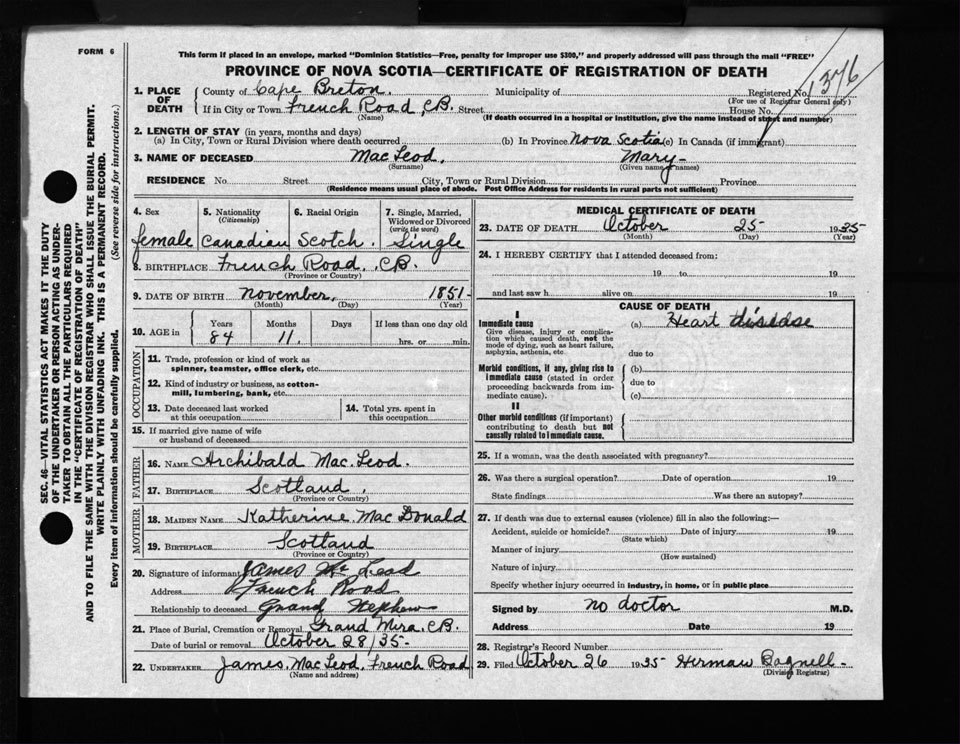 FORM 6
This form if placed in an envelope, marked "Dominion Statistics—Free, penalty for improper use $300," and properly addressed will pass through the mail "FREE"
1376
PROVINCE OF NOVA SCOTIA—CERTIFICATE OF REGISTRATION OF DEATH
SEC. 46—VITAL STATISTICS ACT MAKES IT THE DUTY
OF THE UNDERTAKER OR PERSON ACTING AS UNDER-
TAKER TO OBTAIN ALL THE PARTICULARS REQUIRED
IN THE "CERTIFICATE OF REGISTRATION OF DEATH"
AND TO FILE THE SAME WITH THE DIVISION REGISTRAR WHO SHALL ISSUE THE BURIAL PERMIT.
WRITE PLAINLY WITH UNFADING INK. THIS IS A PERMANENT RECORD.
Every item of information should be carefully supplied. (See reverse side for instructions.)
1. PLACE OF DEATH County of Cape Breton. Municipality of Registered No.
(For use of Registrar General only)
If in City or Town French Road, C.B. Street House No.
(Name) (If death occurred in a hospital or institution, give the name instead of street and number)
2. LENGTH OF STAY (in years, months and days)
(a) In City, Town or Rural Division where death occurred (b) In Province Nova Scotia (c) In Canada (if immigrant)
3. NAME OF DECEASED Mac Leod, Mary
(Surname) (Given name, names)
RESIDENCE No. Street City, Town or Rural Division Province
(Residence means usual place of abode. Post Office Address for residents in rural parts not sufficient)
4. Sex 5. Nationality (Citizenship) 6. Racial Origin 7. Single, Married, Widowed or Divorced (write the word)
female Canadian Scotch. Single
8. BIRTHPLACE French Road, C.B.
(Province or Country)
9. DATE OF BIRTH November, 1851
(Month) (Day) (Year)
10. AGE in Years Months Days If less than one day old
84 11. hrs. or min.
OCCUPATION
11. Trade, profession or kind of work as
spinner, teamster, office clerk, etc.
12. Kind of industry or business, as cotton-
mill, lumbering, bank, etc.
13. Date deceased last worked
at this occupation
14. Total yrs. spent in
this occupation
15. If married give name of wife
or husband of deceased
FATHER
16. NAME Archibald Mac Leod.
17. BIRTHPLACE Scotland.
(Province or Country)
MOTHER
18. MAIDEN NAME Katherine Mac Donald
19. BIRTHPLACE Scotland
(Province or Country)
20. Signature of informant James Mc Leod
Address French Road
Relationship to deceased Grand Nephew
21. Place of Burial, Cremation or Removal Grand Mira, C.B.
Date of burial or removal October 28/35-
22. UNDERTAKER James Mac Leod, French Road
(Name and address)
MEDICAL CERTIFICATE OF DEATH
23. DATE OF DEATH October 25- 1935-
(Month) (Day) (Year)
24. I HEREBY CERTIFY that I attended deceased from:
19 to 19
and last saw h alive on 19
CAUSE OF DEATH
I
Immediate cause
Give disease, injury or complica-
tion which caused death, not the
mode of dying, such as heart failure,
asphyxia, asthenia, etc
(a) Heart disease
due to
Morbid conditions, if any, giving rise to
immediate cause (stated in order
proceeding backwards from im-
mediate cause).
(b)
due to
(c)
II
Other morbid conditions (if important)
contributing to death but not
causally related to immediate cause.
25. If a woman, was the death associated with pregnancy?
26. Was there a surgical operation? Date of operation 19
State findings Was there an autopsy?
27. If death was due to external causes (violence) fill in also the following:—
Accident, suicide or homicide? Date of injury 19
(State which)
Manner of injury
(How sustained)
Nature of injury
Specify whether injury occurred in industry, in home, or in public place
Signed by no doctor M.D.
Address Date 19
28. Registrar's Record Number
29. Filed October 26 1935 Herman Bagnell-
(Division Registrar)